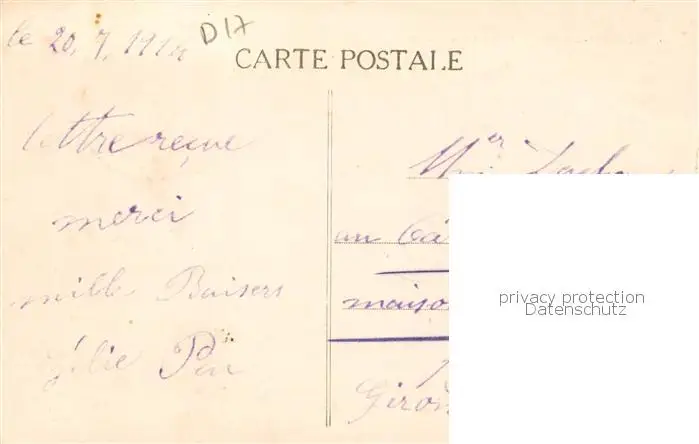 le 20.7.1914
D17
CARTE POSTALE
lettre reçue
merci
mille Baisers
au
maison
Giron
privacy protection
Datenschutz